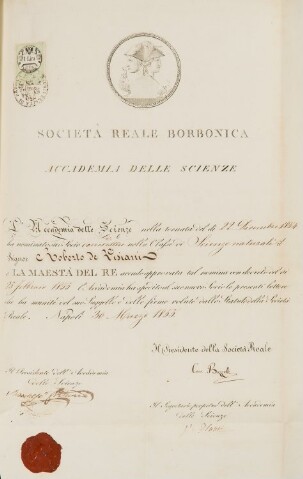 SOCIETÀ REALE BORBONICA
ACCADEMIA DELLE SCIENZE
L'Accademia delle Scienze nella tornata del dì 22 Dicembre
ha nominato suo Socio nella Classe di Scienze naturali il
Signor Roberto de Visiani
e LA MAESTÀ DEL RE avendo approvata tal nomina con decreto del dì
febbraio 1855 l'Accademia ha
ha munite del suo Suggello e delle firme volute dallo Statuto della Società
Reale. Napoli 30 Marzo 1855
Il Presidente della Società Reale
Il Presidente dell'Accademia
delle Scienze
Il Segretario perpetuo dell'Accademia
delle Scienze